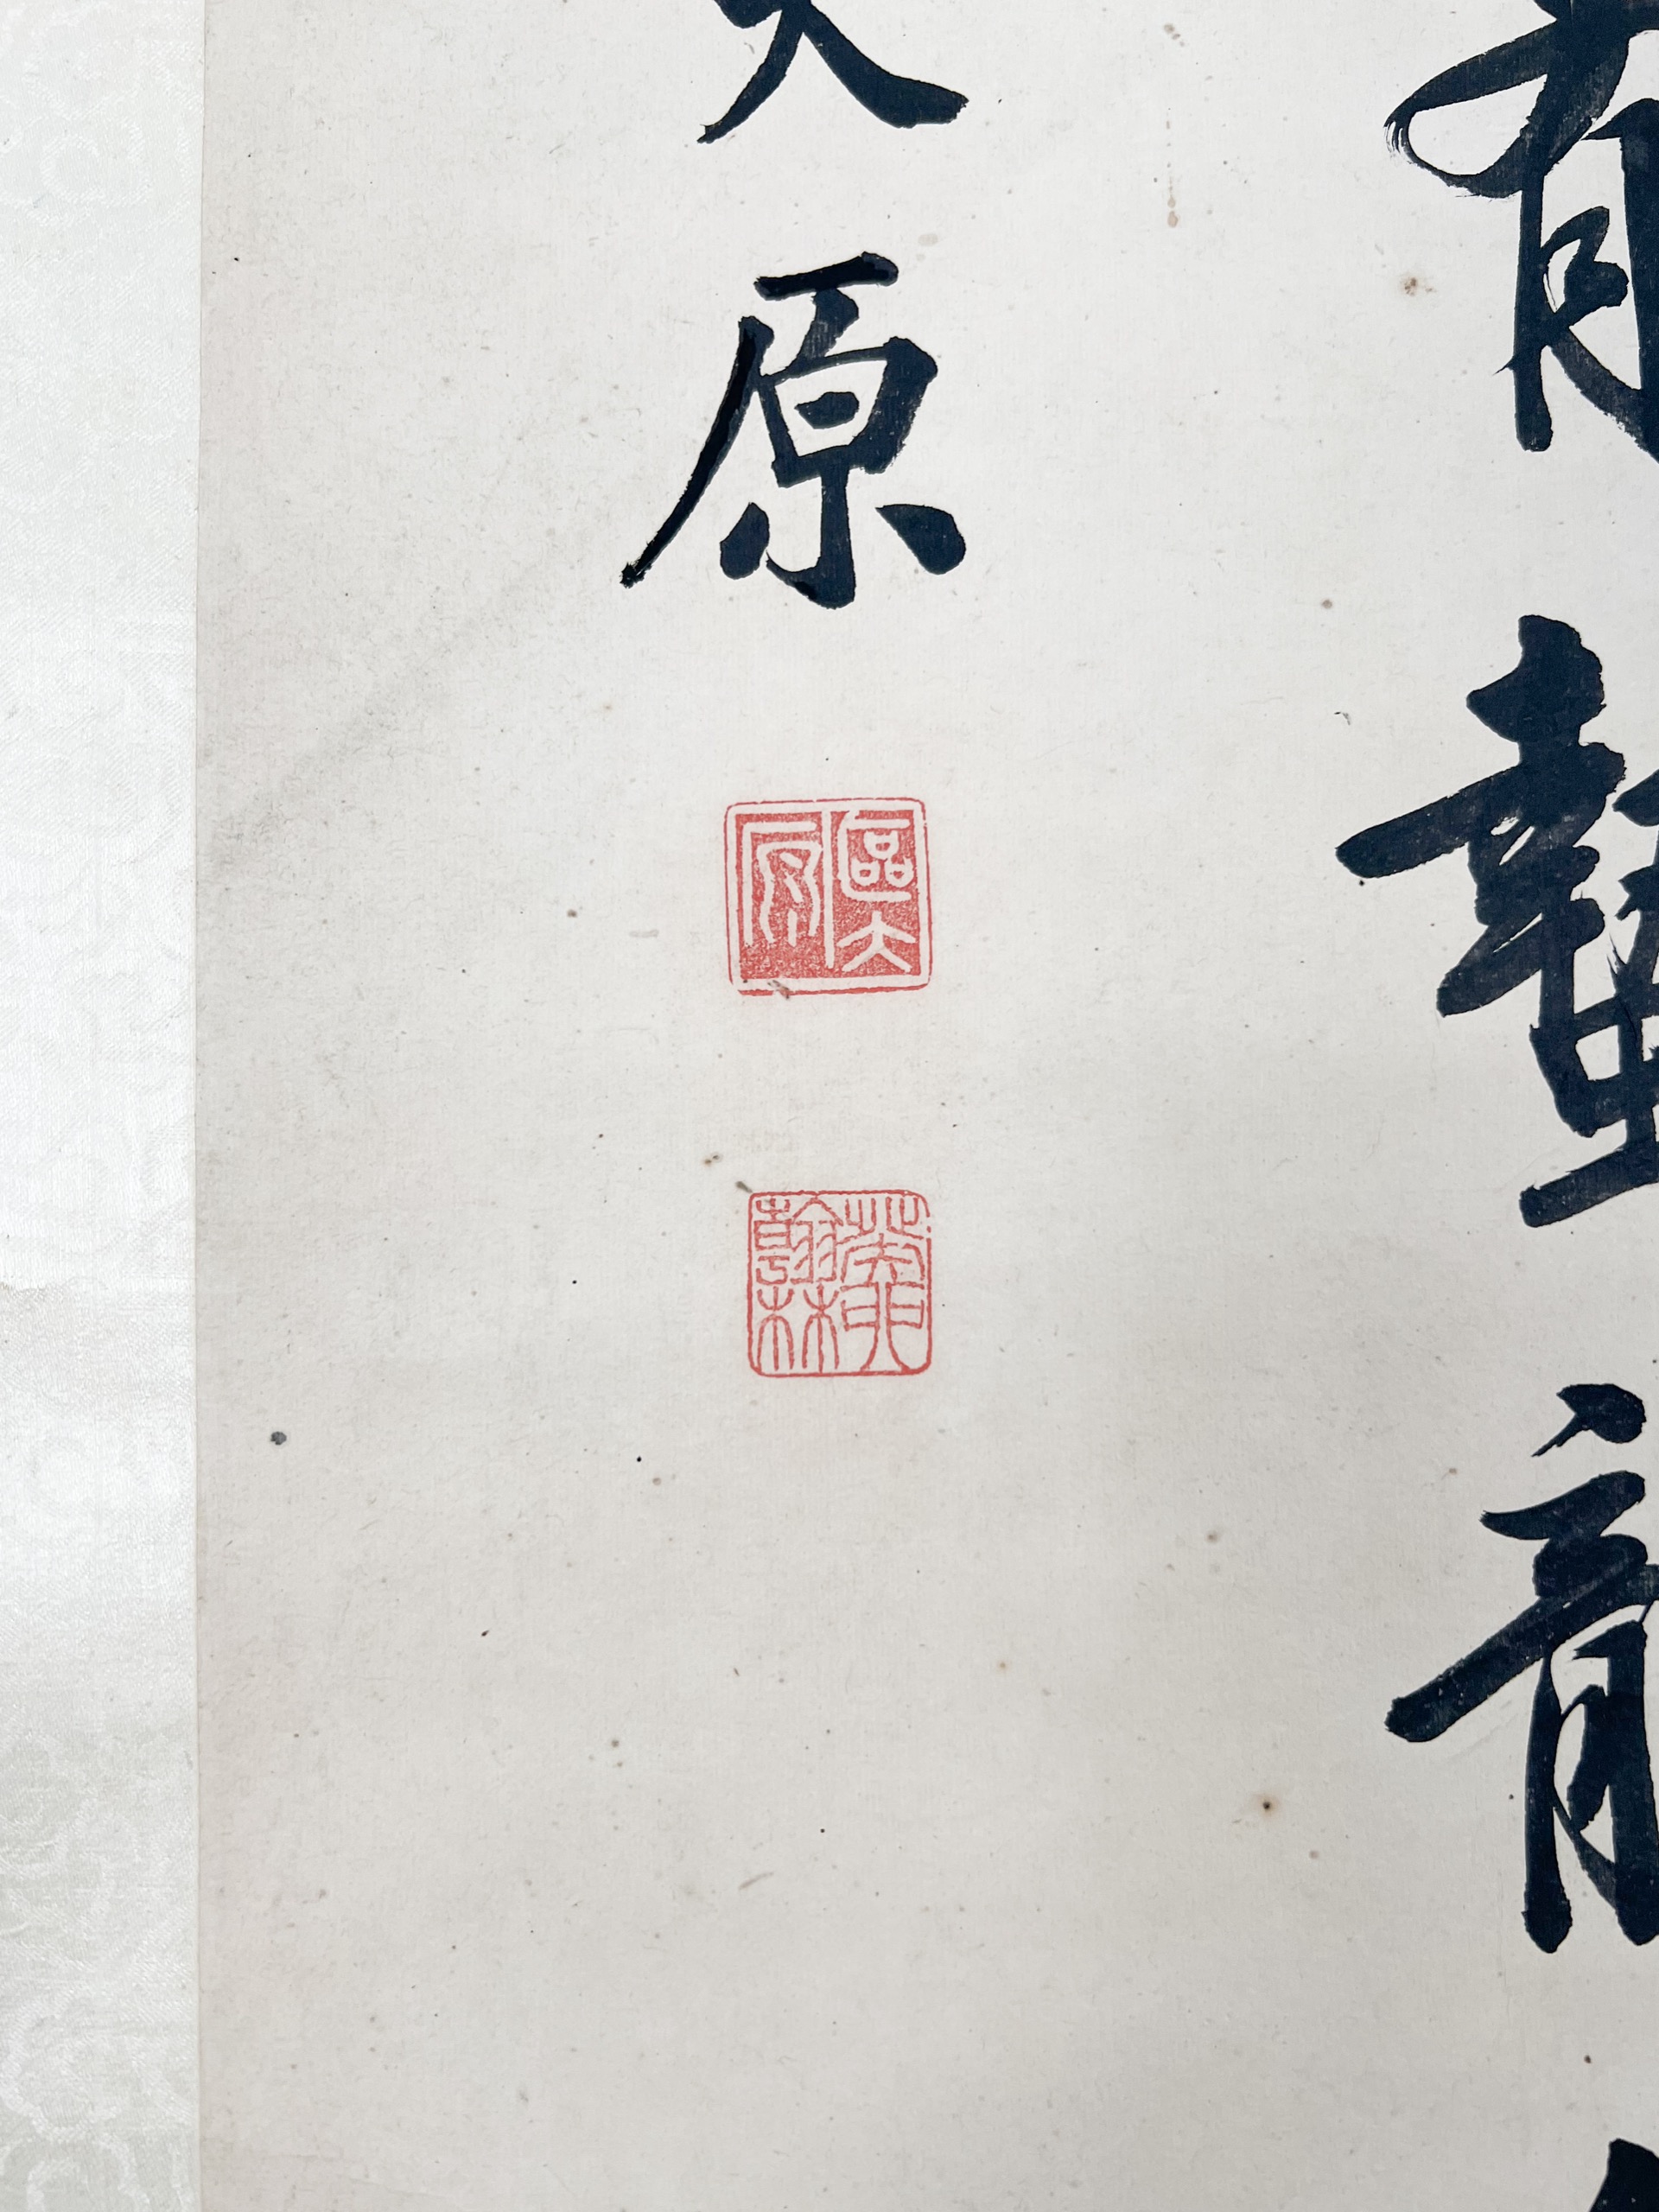 有蟄龍
大原
區大原
翰林